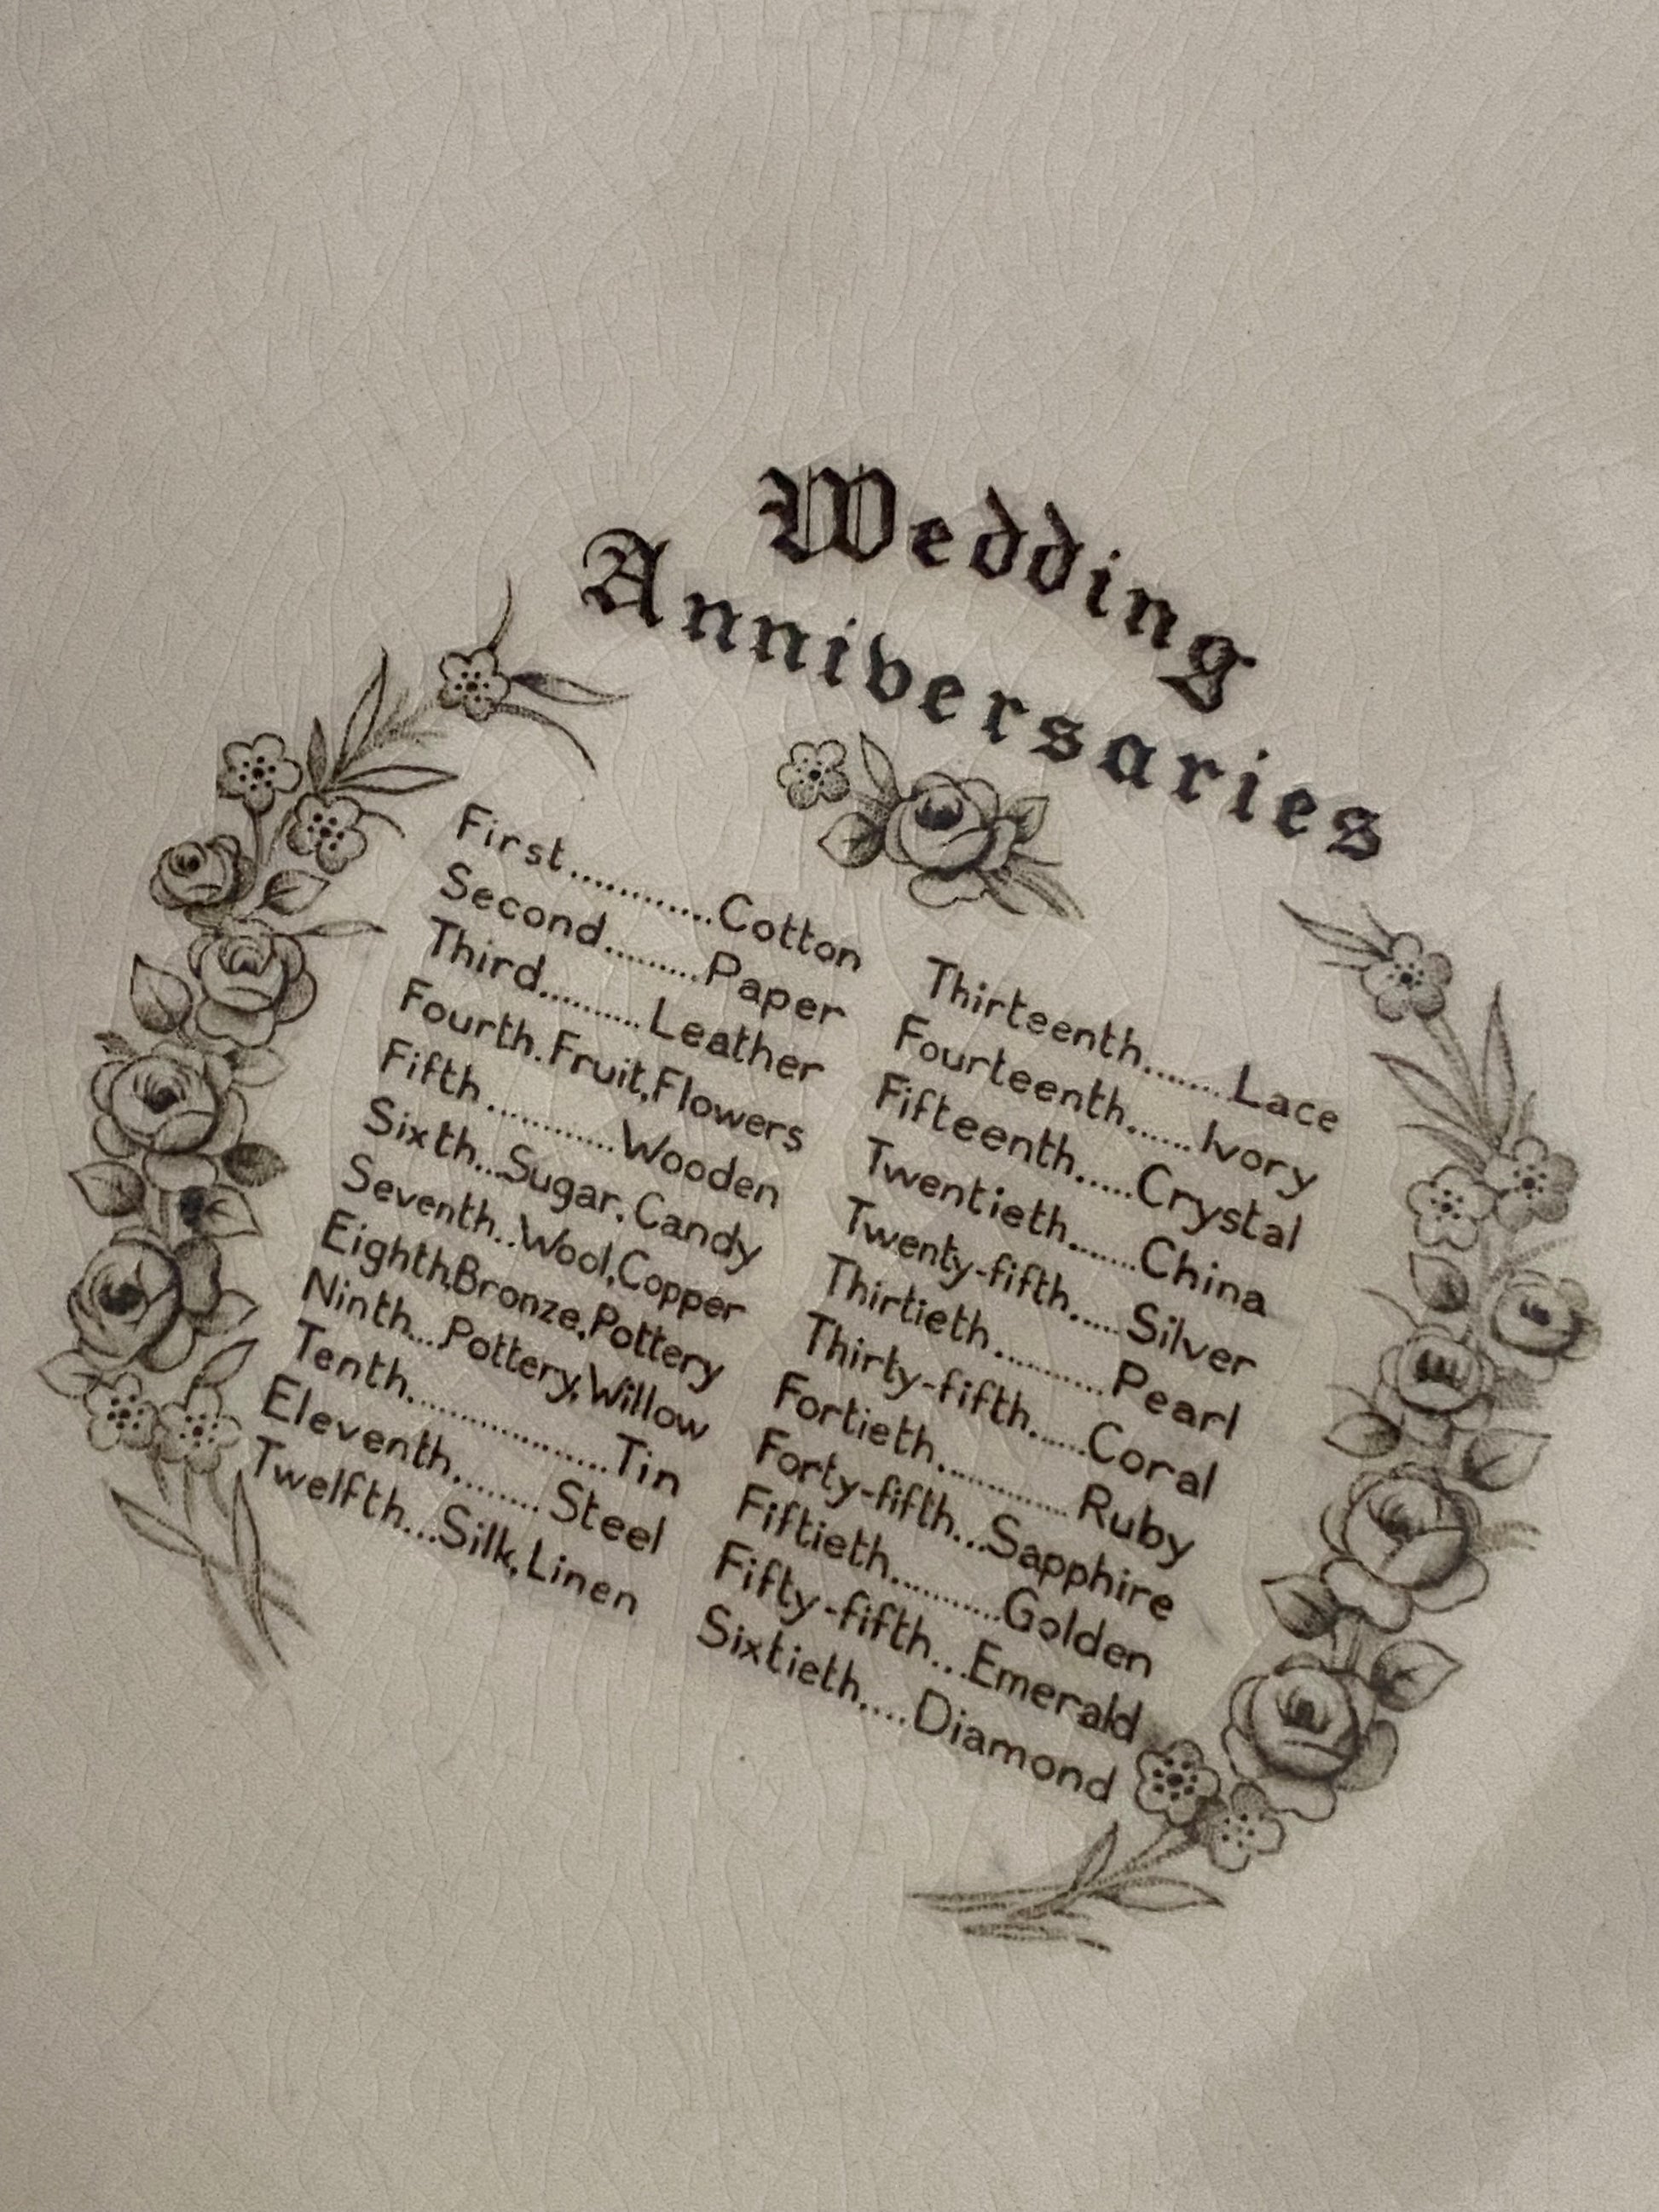 Wedding
Anniversaries
First............Cotton
Second.........Paper
Third..........Leather
Fourth.Fruit,Flowers
Fifth............Wooden
Sixth...Sugar,Candy
Seventh..Wool,Copper
Eighth,Bronze,Pottery
Ninth...Pottery,Willow
Tenth.................Tin
Eleventh........Steel
Twelfth...Silk,Linen
Thirteenth.......Lace
Fourteenth......Ivory
Fifteenth.....Crystal
Twentieth......China
Twenty-fifth.....Silver
Thirtieth..........Pearl
Thirty-fifth.....Coral
Fortieth...........Ruby
Forty-fifth...Sapphire
Fiftieth..........Golden
Fifty-fifth...Emerald
Sixtieth....Diamond